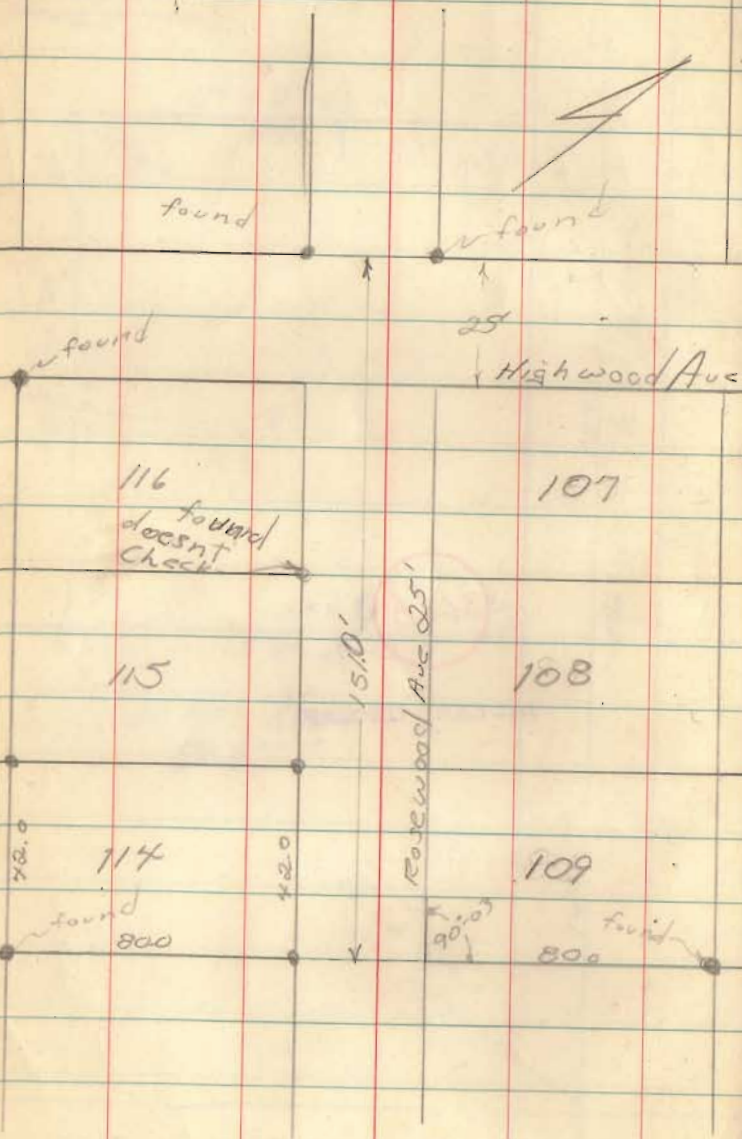 found
found
25
found
Highwood Ave
116
107
found
doesnt
Check
151.0'
Rosewood Ave 25'
115
108
42.0
114
42.0
109
found
800
90°.03
800
found